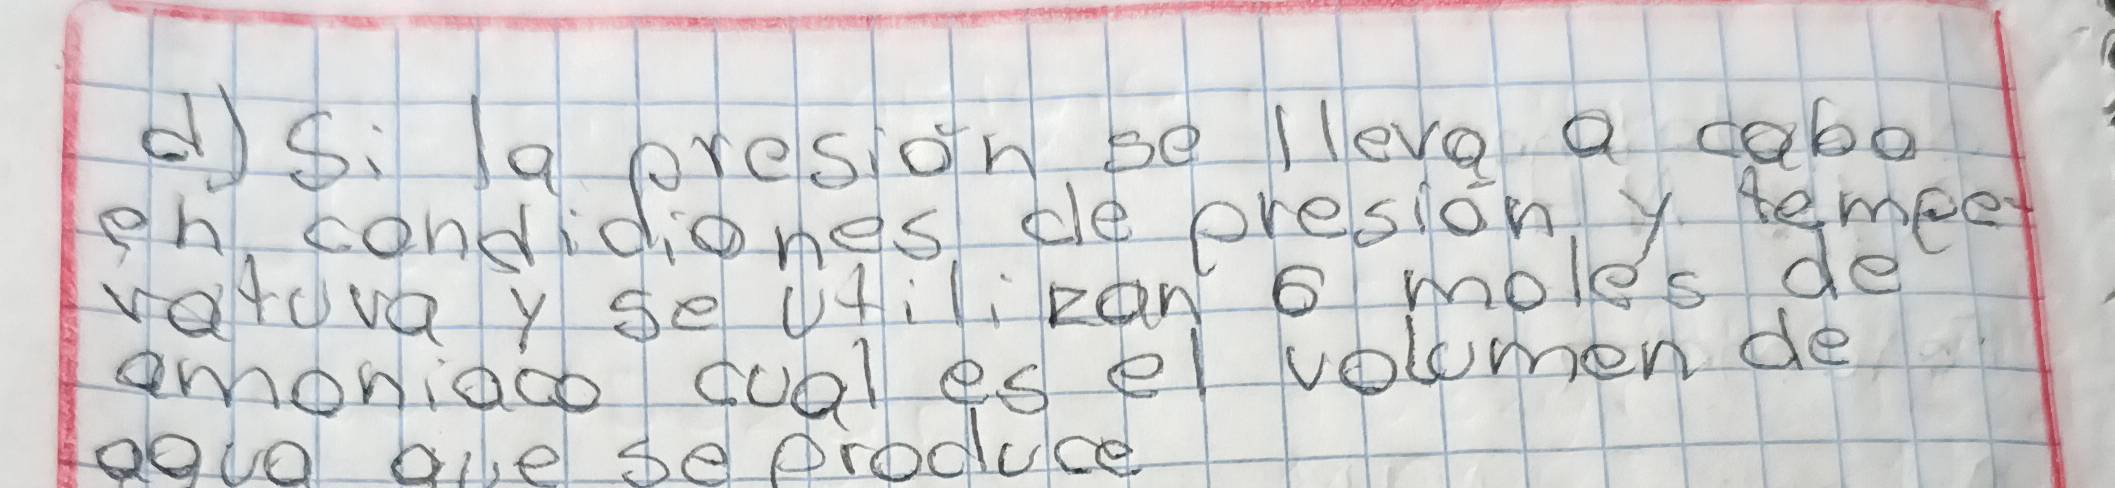 d) Si la presión se lleva a cabo
en condidiones de presión y tempe
ratura y se utilizan 6 moles de
amoniaco cual es el volumen de
agua que se produce